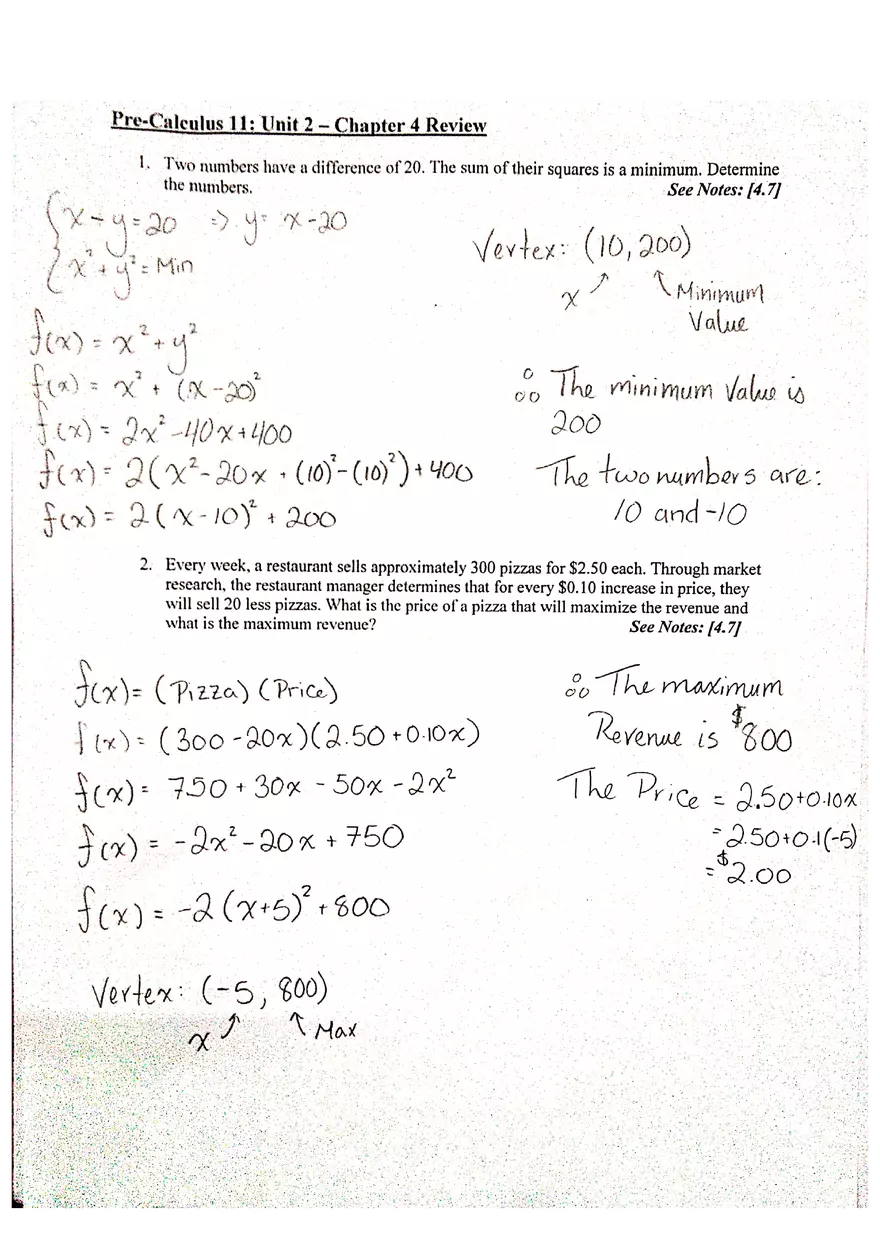 Pre-Calculus 11: Unit 2 – Chapter 4 Review
1. Two numbers have a difference of 20. The sum of their squares is a minimum. Determine
the numbers. See Notes: [4.7]
x - y = 20 => y = x - 20
x² + y² = Min
f(x) = x² + y²
f(x) = x² + (x - 20)²
f(x) = 2x² - 40x + 400
f(x) = 2(x² - 20x + (10)² - (10)²) + 400
f(x) = 2(x - 10)² + 200
Vertex: (10, 200)
x ↗ ↖ Minimum
Value
∴ The minimum Value is
200
The two numbers are:
10 and -10
2. Every week, a restaurant sells approximately 300 pizzas for $2.50 each. Through market
research, the restaurant manager determines that for every $0.10 increase in price, they
will sell 20 less pizzas. What is the price of a pizza that will maximize the revenue and
what is the maximum revenue? See Notes: [4.7]
f(x) = (Pizza) (Price)
f(x) = (300 - 20x)(2.50 + 0.10x)
f(x) = 750 + 30x - 50x - 2x²
f(x) = -2x² - 20x + 750
f(x) = -2(x+5)² + 800
Vertex: (-5, 800)
x ↗ ↖ Max
∴ The maximum
Revenue is $800
The Price = 2.50+0.10x
= 2.50+0.1(-5)
= $2.00